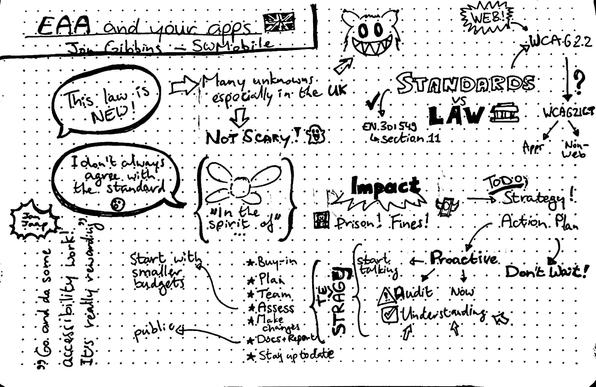 EAA and your apps
Jon Gibbins — SWMobile
This law is
NEW!
Many unknowns
especially in the UK
NOT SCARY!
I don't always
agree with
the standard
"In the
spirit of"
WEB!
WCAG2.2
?
WCAG2ICT
Apps
Non-
web
STANDARDS
vs
LAW
EN.301549
section 11
Impact
Prison! Fines!
TODO:
Strategy!
Action Plan
Don't Wait!
Proactive
start
talking
Audit
Now
Understanding
STRATEGY
Buy-in
Plan
Team
Assess
Make
changes
Docs+Report
Stay up to date
Start with
smaller
budgets
public
"Go and do some
accessibility work!
It's really rewarding"